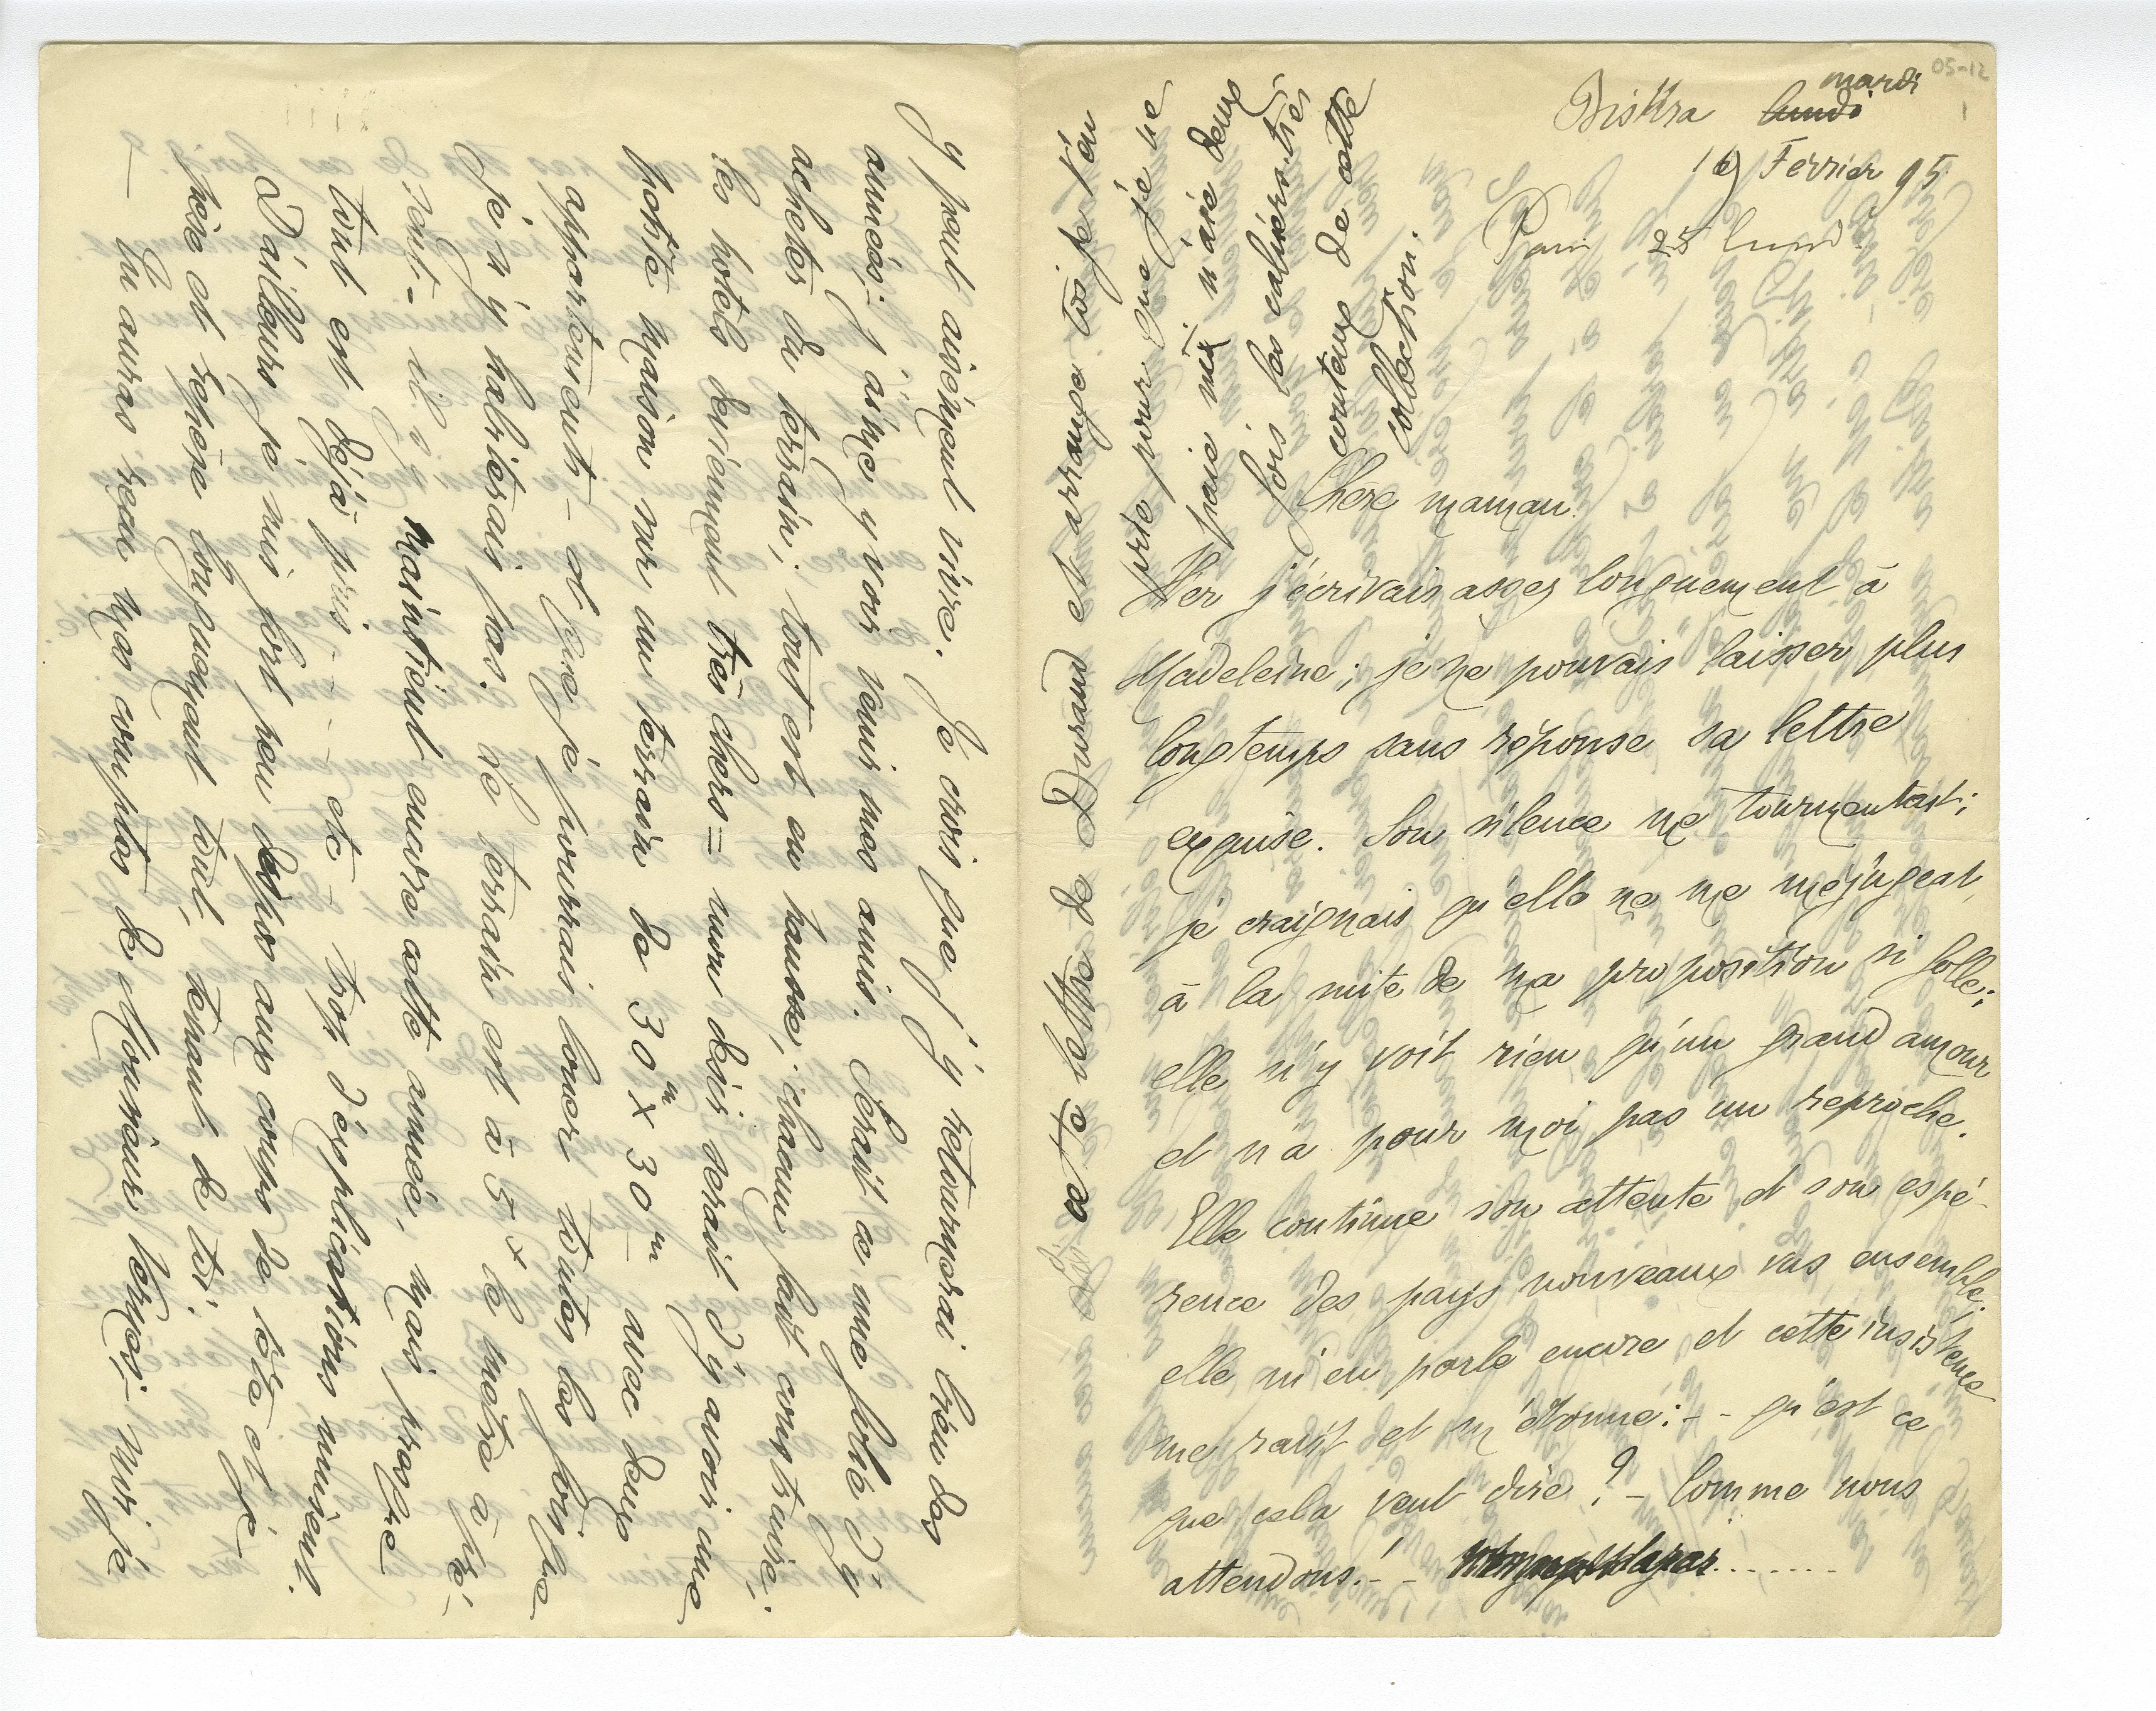 05-12
1
Biskra lundi mardi
19 Février 95
Paris 25 lundi
Chère maman.
Hier j'écrivais assez longuement à
Madeleine; je ne pouvais laisser plus
longtemps sans réponse sa lettre
exquise. Son silence me tourmentait;
je craignais qu'elle ne me méjugeat,
à la suite de ma proposition si folle;
elle n'y voit rien qu'un grand amour
et n'a pour moi pas un reproche.
Elle continue son attente et son espé-
rence des pays nouveaux vus ensemble;
elle m'en parle encore et cette insistence
me ravit et m'étonne: - - qu'est ce
que cela veut dire? - Comme nous
attendons! - - ........
ce ta lettre de Durand et arrange toi je t'en
prie pour que je ne
paie ni n'aie deux
fois les exemplaires
couteux de cette
collection.
y peut aisément vivre. Je crois que j'y retournerai bien des
années; j'aime y voir venir mes amis. Serait ce une folie d'y
acheter du terrain; tout est en hausse; chacun fait construire;
les hotels deviennent très chers = mon désir serait d'y avoir une
petite maison sur un terrain de 30m x 30m - avec deux
appartements - et que je pourrais louer toutes les fois que
je n'y habiterais pas. Le terrain est à 5 x le mètre à pré-
sent - il s'y maintient encore cette année, mais presque
tout est déjà pris - - - etc - trop d'explications nuisent.
D'ailleurs je suis fort peu dispos aux coups de tête et je
pèse et repèse longuement tout, tenant de toi.
— Tu auras reçu mes comptes de Monsieur Lormes; - puis je